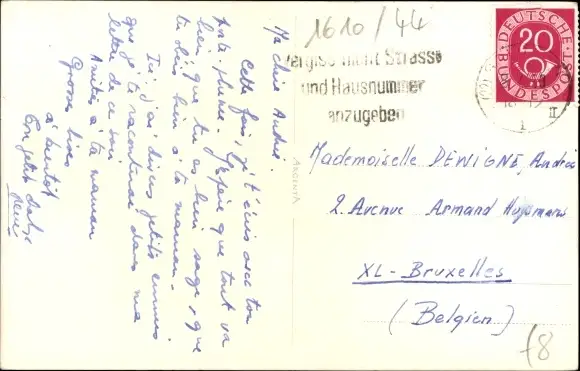 Ma chère Andrée.
Cette fois, je t'écris avec ton
porte-plume. J'espère que tout va
bien, que tu es bien sage, que
tu obéis bien à ta maman.
Ici j'ai divers petits ennuis
que je te raconterai dans ma
lettre de ce soir.
Amitiés à ta maman
Grosses bises
à bientôt
Ton petit
ARGENTA
1610/44
Vergiss nicht Strasse
und Hausnummer
anzugeben
DEUTSCHE
BUNDESPOST
20
Mademoiselle DEWIGNE, Andrée
2. Avenue Armand Huysmans
XL-Bruxelles
(Belgien)
f8